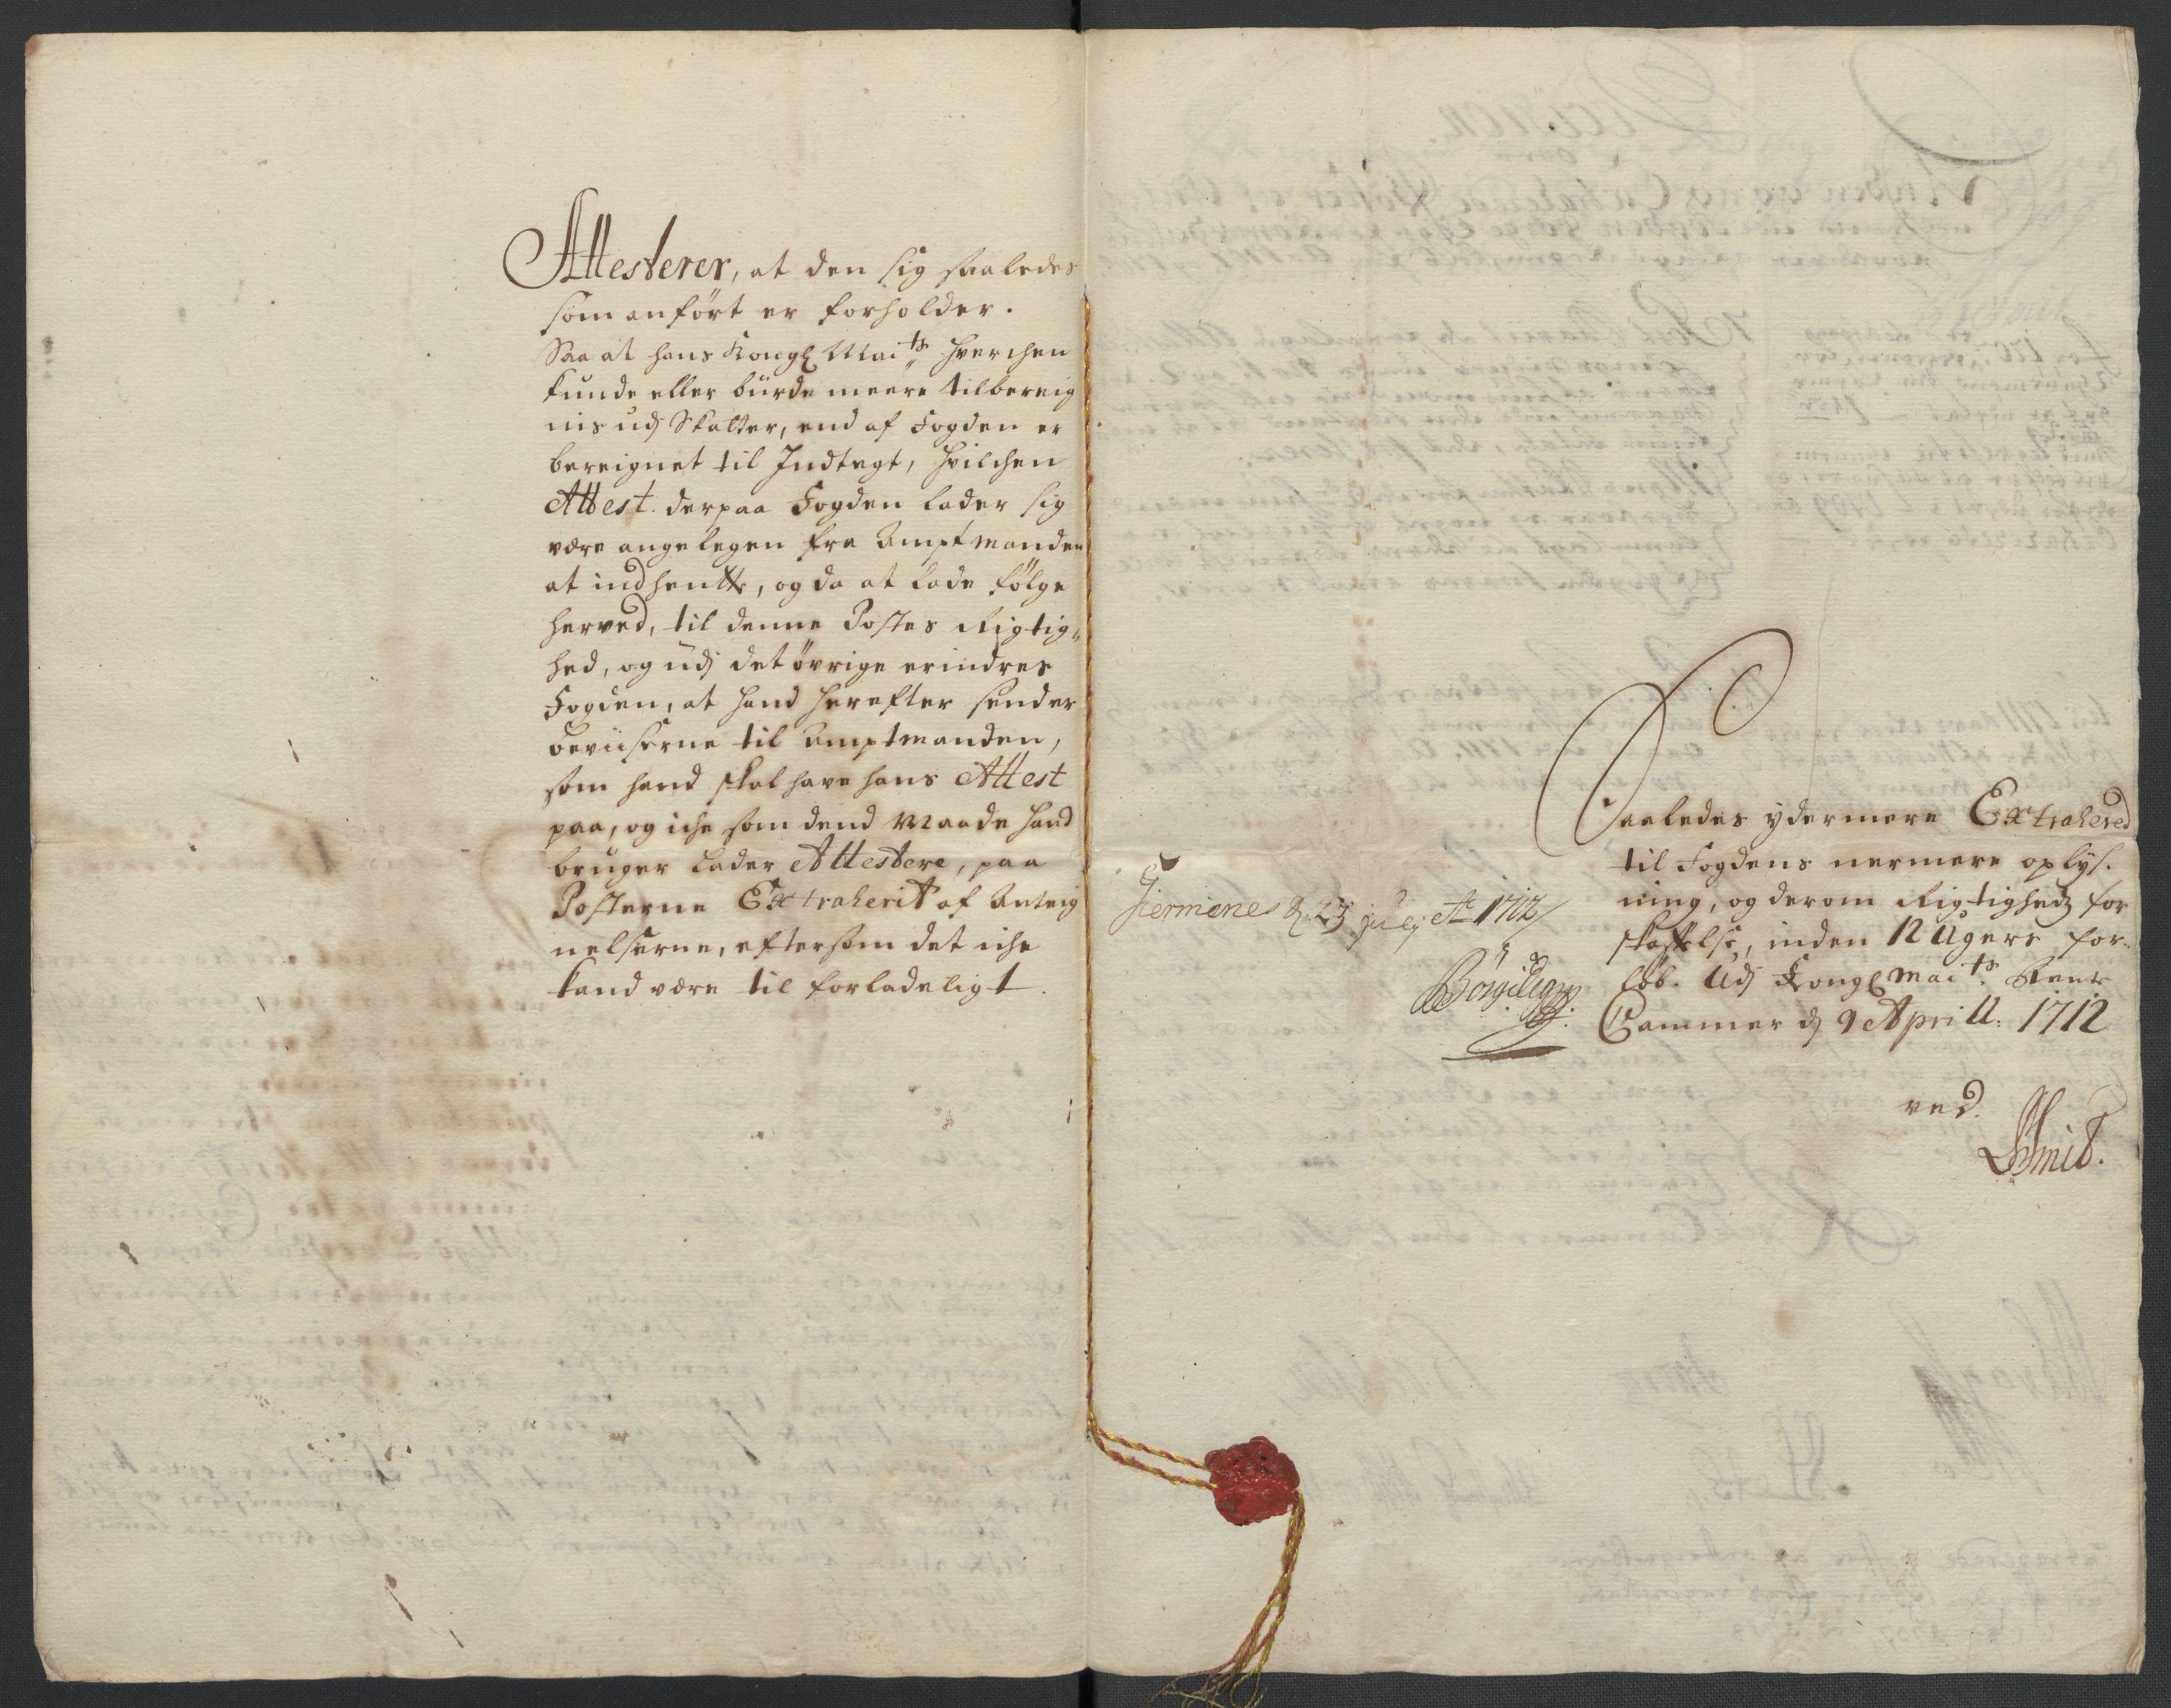 Attesterer, at den sig saaledes
som anført er forholder.
Saa at hans Kongl Mai:ts hverchen
kunde eller burde meere tilbereig
nis udj Skatter, end af Fogden er
bereignet til Indtegt, hvilchen
Attest. derpaa Fogden lader sig
være angelegen fra Amptmanden
at indhentte, og da at lade følge
herved, til denne Postes Rigtig,,
hed, og udj det øvrige erindres
Fogden, at hand herefter sender
beviiserne til Amptmanden,
som hand skal have hans Attest
paa, og iche som dend Maade hand
bruger lader Attestere, paa
Posterne Extraherit af Anteig
nelserne, eftersom det iche
kand være til forladeligt.
Saaledes ydermere Extrahered
til Fogdens nermere oplys.
ning, og derom Rigtighedz for
skaffelse, inden 12 Ugers for-
løb. Udj Kongl Mai:ts Rente
Cammer dj 9 Aprill: 1712
ved.
d. 23 julj Ao 1712